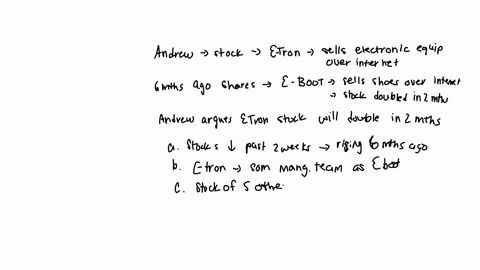 Andrew → stock → ETron → sells electronic equip
over internet
6 mths ago shares → E-BOOT → sells shoes over internet
→ stock doubled in 2 mths
Andrew argues ETron stock will double in 2 mths
a. Stocks ↓ past 2 weeks → rising 6 mths ago
b. Etron → sam mang. team as Eboot
c. Stock of 5 othe